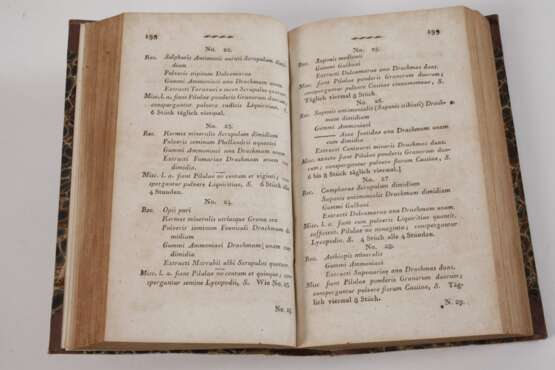 198
No. 22.
Rec. Sulphuris Antimonii aurati Scrupulum dimi-
dium
Pulveris stipitum Dulcamarae
Gummi Ammoniaci ana Drachmam unam
Extracti Taraxaci
Misc. l. a. fiant Pilulae
conspergantur pulvere radicis Liquiritiae, S.
6 Stück täglich viermal.
No. 23.
Rec. Kermes mineralis Scrupulum dimidium
Pulveris seminum Phellandrii aquatici
Gummi Ammoniaci ana Drachmam unam
Extracti Fumariae Drachmam unam cum
dimidia
Misc. l. a. fiant Pilulae no centum et viginti; con-
spergantur pulvere Liquiritiae, S. 6 Stück alle
4 Stunden.
No. 24.
Rec. Opii puri
Kermes mineralis utriusque Grana sex
Pulveris seminum Foeniculi Drachmam di-
midiam
Gummi Ammoniaci Drachmam unam cum
dimidia
Extracti Marrubii albi Scrupulos quatuor
Misc. l. a. fiant Pilulae no centum et quinque; con-
spergantur semine Lycopodii, S. Wie No. 23.
No. 25.
199
No. 25.
Rec. Saponis medicati
Gummi Galbani
Extracti Dulcamarae ana Drachmas duas.
Misc. fiant Pilulae ponderis Granorum duorum;
conspergantur pulvere florum Cassiae, S.
Täglich viermal 8 Stück.
No. 26.
Rec. Saponis antimonialis (Saponis stibiati) Drach-
mam dimidiam
Gummi Ammoniaci
Asae foetidae ana Drachmam unam
cum dimidia
Extracti Centaurii minoris Drachmam unam.
Misc. fiant Pilulae ponderis Granorum duorum;
conspergantur pulvere florum Cassiae, S.
6 bis 8 Stück täglich viermal.
No. 27.
Rec. Camphorae Scrupulum dimidium
Saponis antimonialis Drachmam dimidiam
Gummi Galbani
Extracti Dulcamarae ana Drachmam unam.
Misc. l. a. fiant cum pulveris Liquiritiae quantit.
sufficient. Pilulae no nonaginta; conspergantur
Lycopodio. S. 4 Stück alle 4 Stunden.
No. 28.
Rec. Aethiopis mineralis
Gummi Ammoniaci
Extracti Saponariae ana Drachmas duas.
Misc. fiant Pilulae ponderis Granorum duorum;
conspergantur pulvere florum Cassiae, S. Täg-
lich viermal 8 Stück.
N. 29.